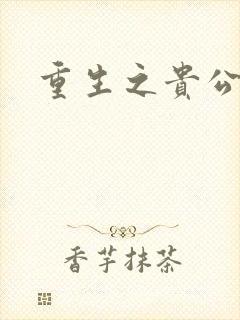 重生之貴公
香芋抹茶